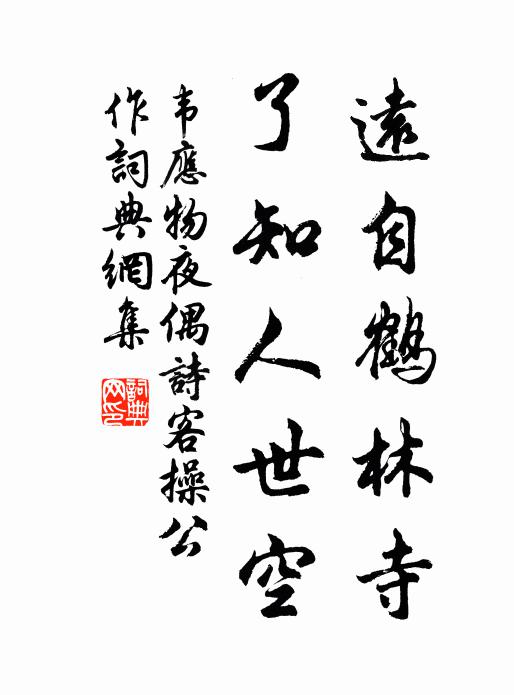 遠自鶴林寺
了知人世空
韦應物夜偶詩客操公
作詞典網集
詞典网印